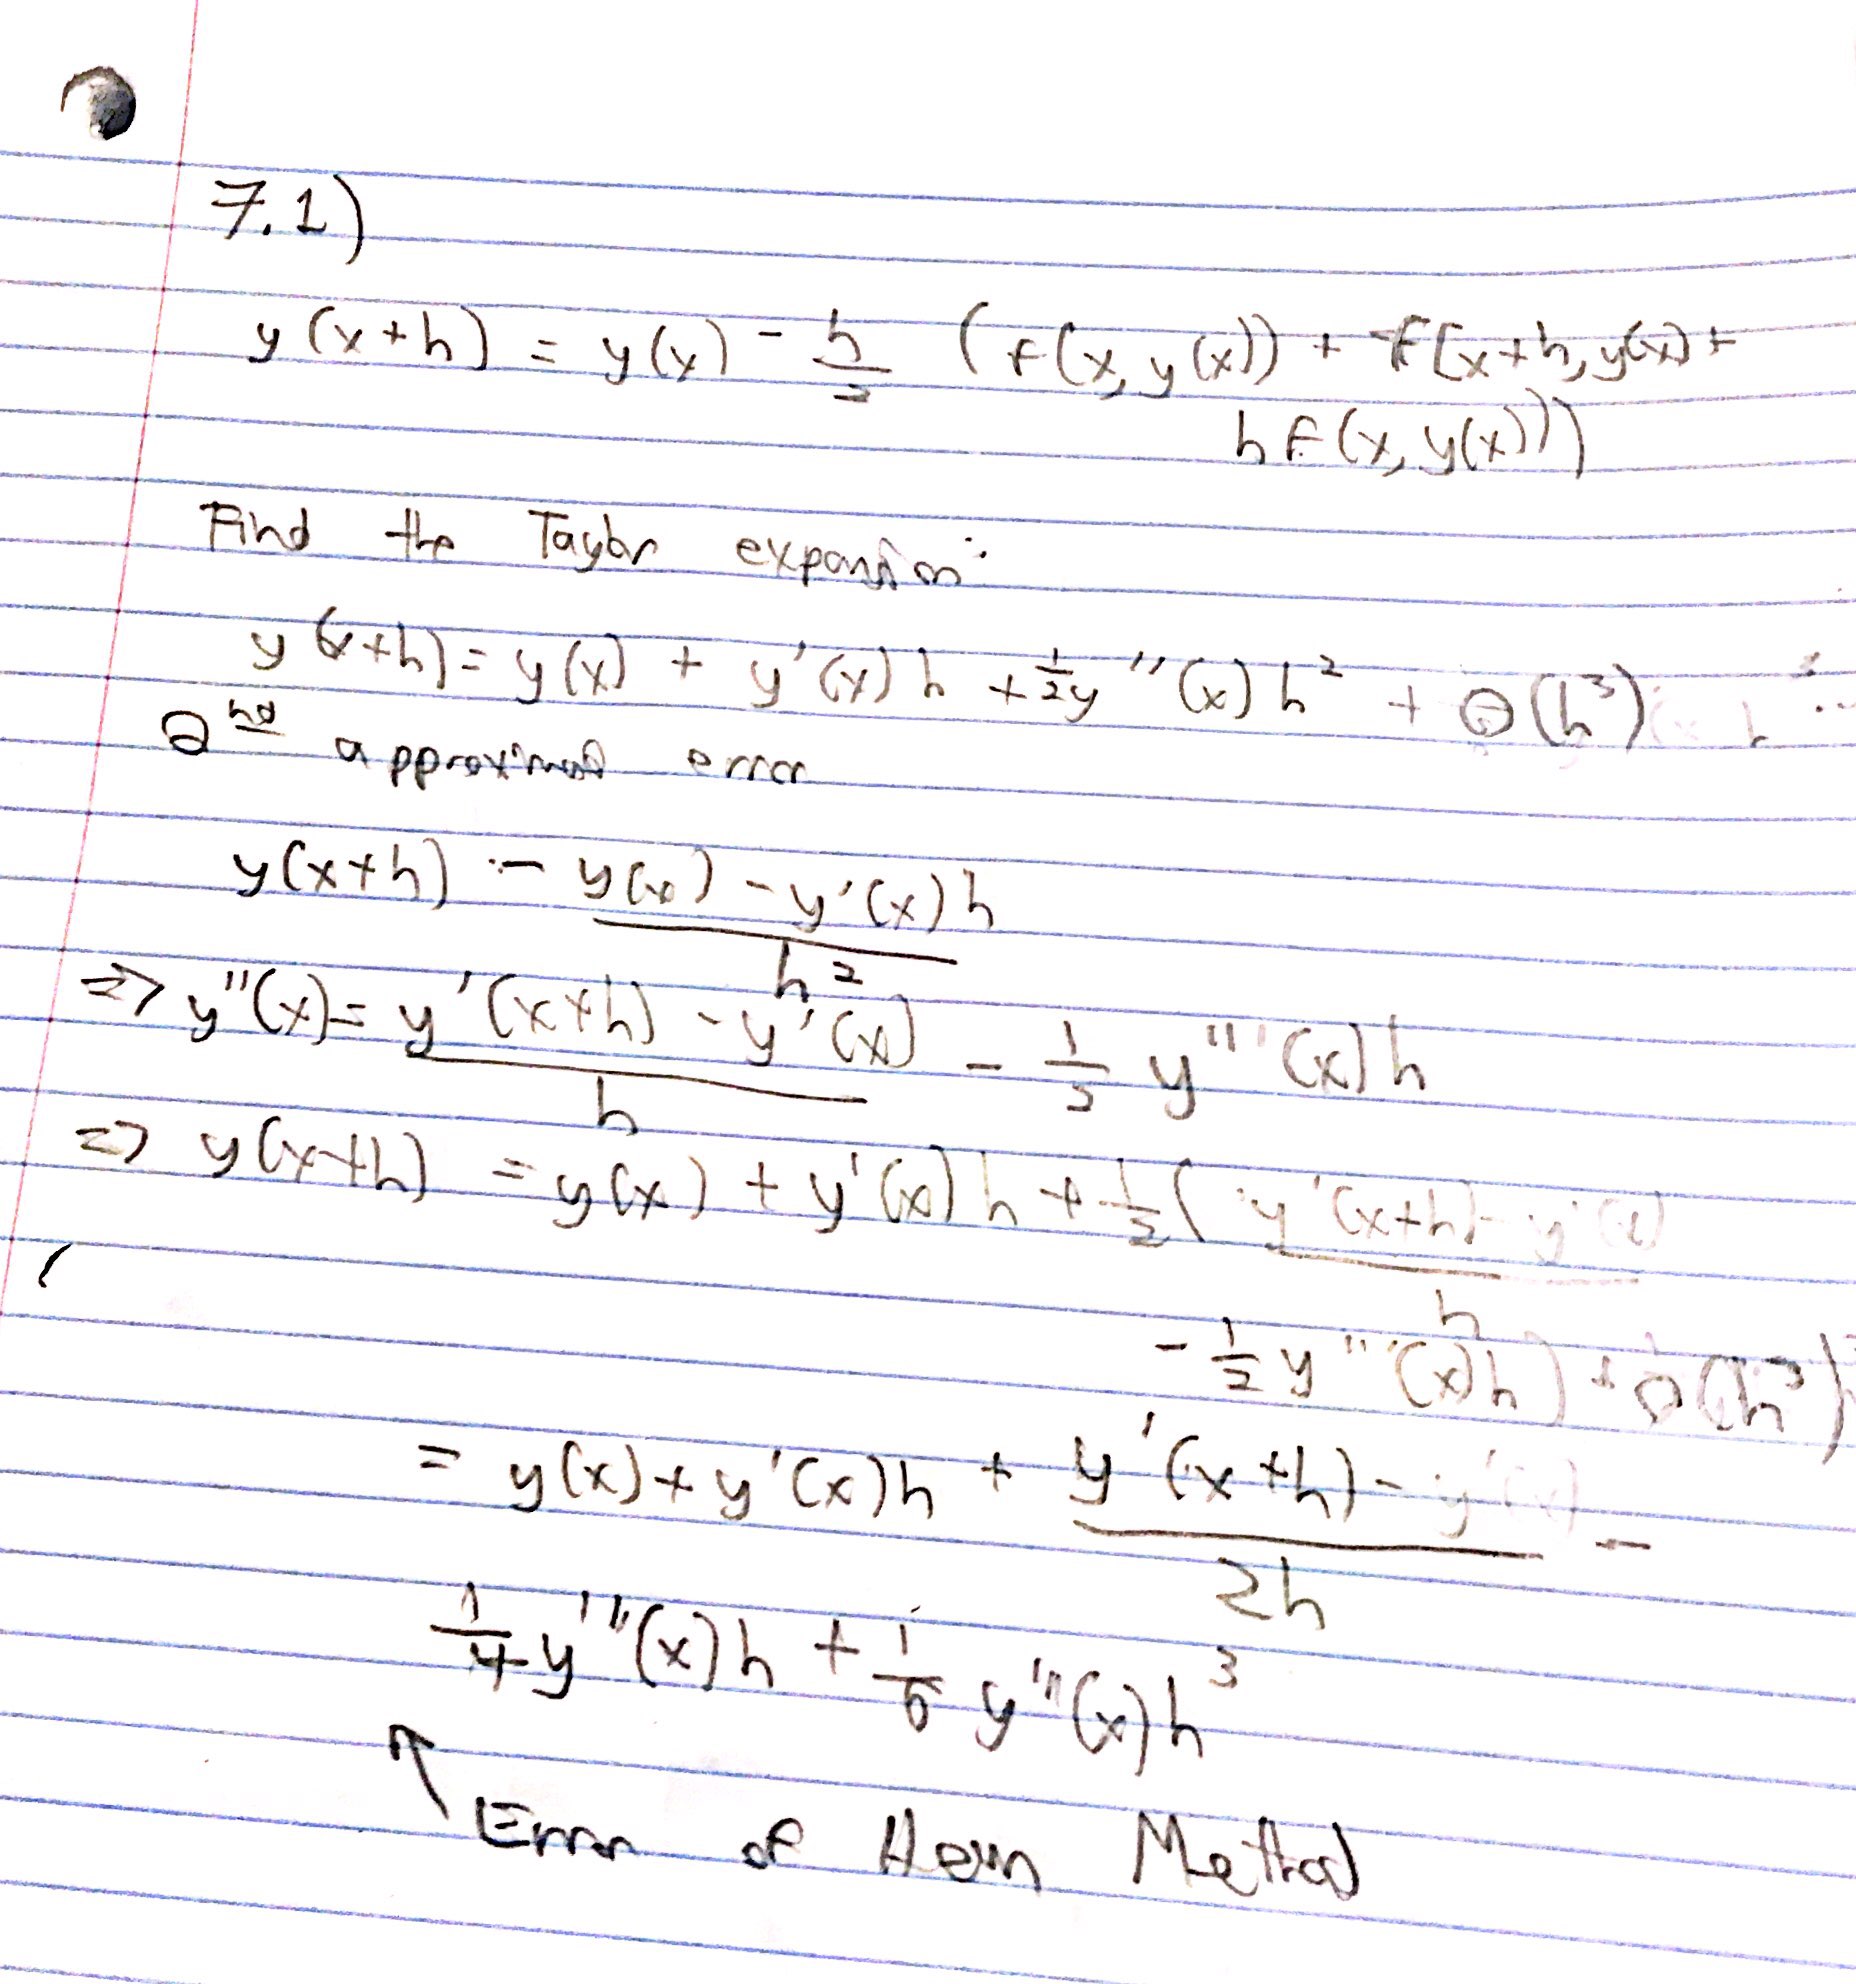 7.1)
y(x+h) = y(x) - h/2 (f(x, y(x)) + f(x+h, y(x) +
hf(x, y(x))))
Find the Taylor expansion:
y(x+h) = y(x) + y'(x)h + 1/2 y''(x)h² + O(h³)
2nd approximate error
y(x+h) - y(x) - y'(x)h / h²
=> y''(x) = y'(x+h) - y'(x) / h - 1/2 y'''(x)h
=> y(x+h) = y(x) + y'(x)h + 1/2 ( y'(x+h) - y'(x) / h
- 1/2 y'''(x)h) + O(h³)
= y(x) + y'(x)h + y'(x+h) - y'(x) / 2h -
1/4 y'''(x)h + 1/6 y'''(x)h³
↑ Error of Heun Method